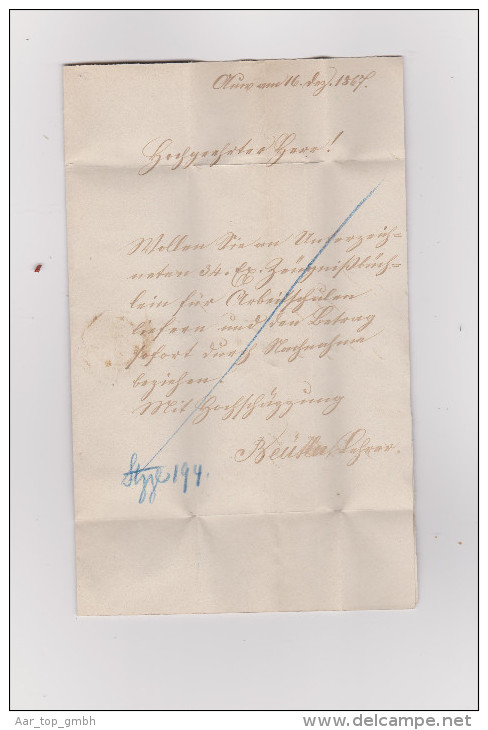 Auw am 16. Dez. 1867.
Hochgeehrter Herr!
Wollen Sie an Unterzeich=
neten 34. Ex. Zeügnißbüch=
lein für Arbeitschulen
liefern und den Betrag
sofort durch Nachnahme
beziehen.
Mit Hochschäzzung
Lehrer.
194.
Aar_top_gmbh
www.delcampe.net